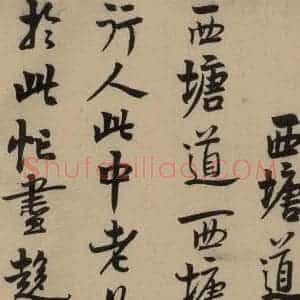 西塘道
西塘道一西塘
行人此中老
於此忙畫
Shufaziliao.COM